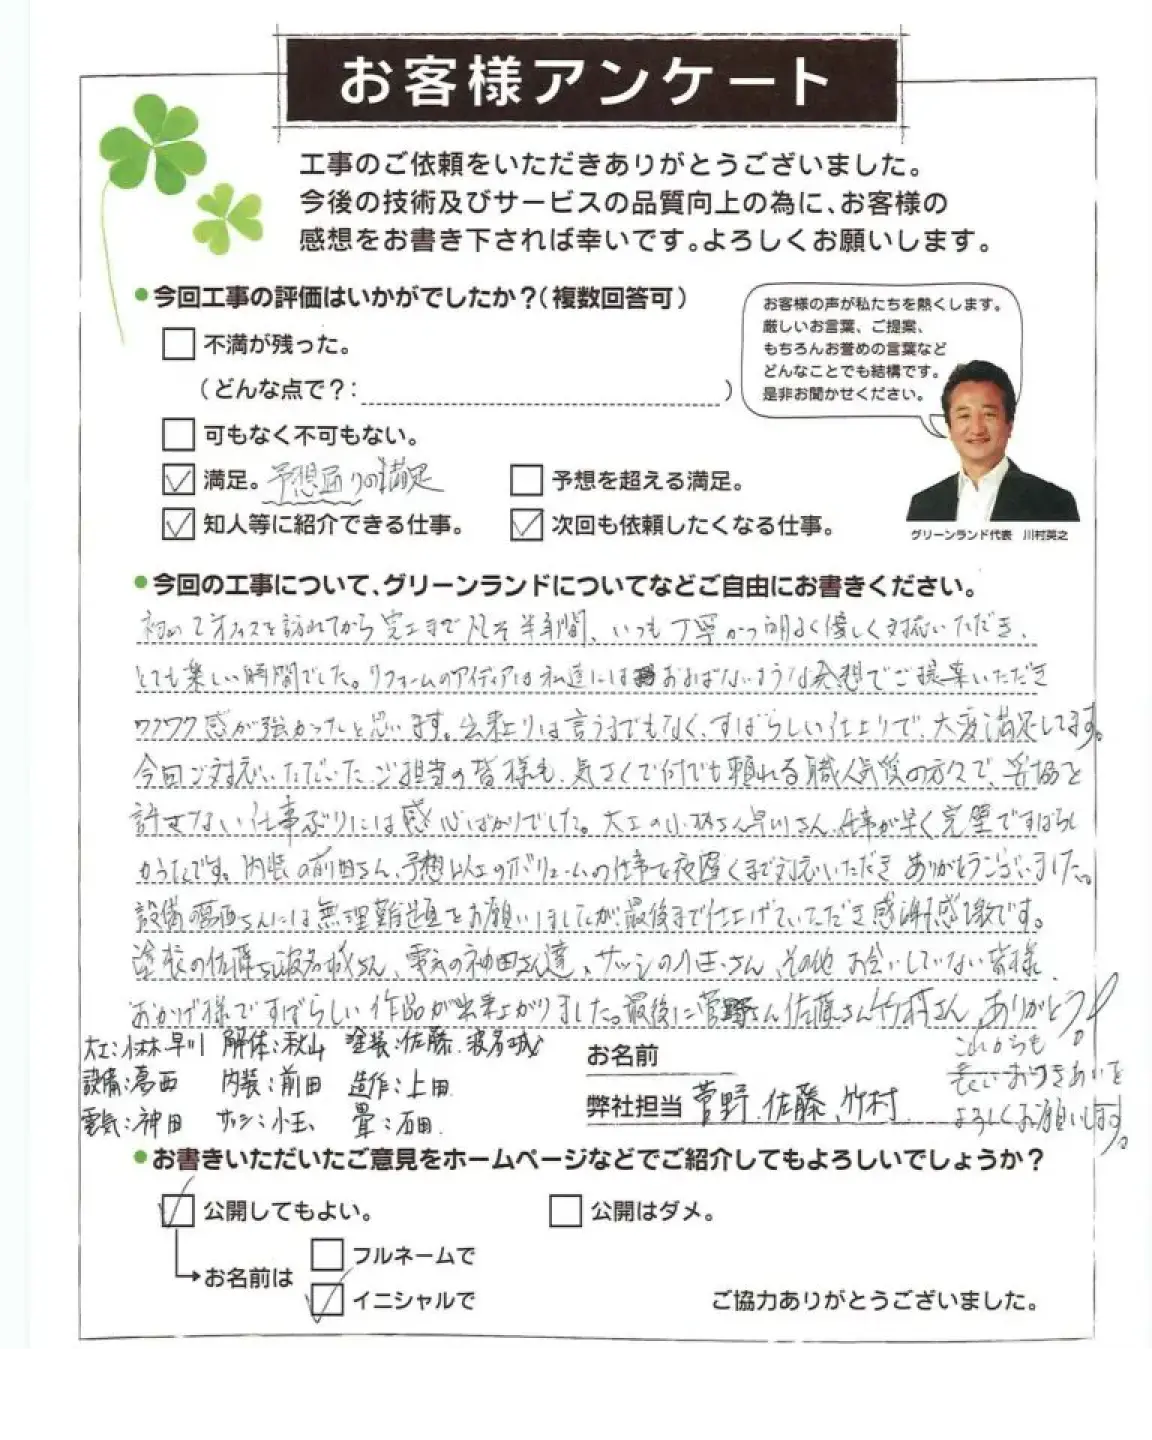 お客様アンケート
工事のご依頼をいただきありがとうございました。
今後の技術及びサービスの品質向上の為に、お客様の
感想をお書き下されば幸いです。よろしくお願いします。
●今回工事の評価はいかがでしたか？（複数回答可）
不満が残った。
（どんな点で？：　　　）
可もなく不可もない。
満足。予想通りの満足
予想を超える満足。
知人等に紹介できる仕事。
次回も依頼したくなる仕事。
お客様の声が私たちを熱くします。
厳しいお言葉、ご提案、
もちろんお誉めの言葉など
どんなことでも結構です。
是非お聞かせください。
グリーンランド代表　川村英之
●今回の工事について、グリーンランドについてなどご自由にお書きください。
初めてオフィスを訪れてから完工まで凡そ半年間、いつも丁寧かつ明るく優しく対応いただき、
とても楽しい時間でした。リフォームのアイディアは私達にはおよばないような発想でご提案いただき
ワクワク感が強かったと思います。出来上りは言うまでもなく、すばらしい仕上りで、大変満足してます。
今回ご対応いただいた、ご担当の皆様も、気さくで何でも頼れる職人気質の方々で、妥協を
許さない仕事ぶりには感心ばかりでした。大工の小林さん早川さん、仕事が早く完璧ですばらし
かったです。内装の前田さん、予想以上のボリュームの仕事を夜遅くまで対応いただきありがとうございました。
設備の葛西さんには無理難題をお願いしましたが、最後まで仕上げていただき感謝感激です。
塗装の佐藤さん波名城さん、電気の神田さん達、サッシの小玉さん、その他お会いしていない皆様、
おかげ様ですばらしい作品が出来上がりました。最後に菅野さん佐藤さん竹村さん、ありがとう！
これからも
長いおつきあいを
よろしくお願いします。
大工：小林、早川　解体：秋山　塗装：佐藤、波名城
設備：葛西　内装：前田　造作：上田
電気：神田　サッシ：小玉　畳：石田
お名前
弊社担当 菅野、佐藤、竹村
●お書きいただいたご意見をホームページなどでご紹介してもよろしいでしょうか？
公開してもよい。
公開はダメ。
お名前は
フルネームで
イニシャルで
ご協力ありがとうございました。